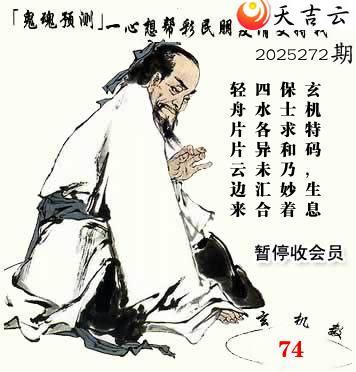 「鬼魂预测」一心想帮彩民朋
天吉云
2025272期
玄机特码，生息
保士求和乃妙着
四水各异未汇合
轻舟片片云边来
暂停收会员
玄机数
74